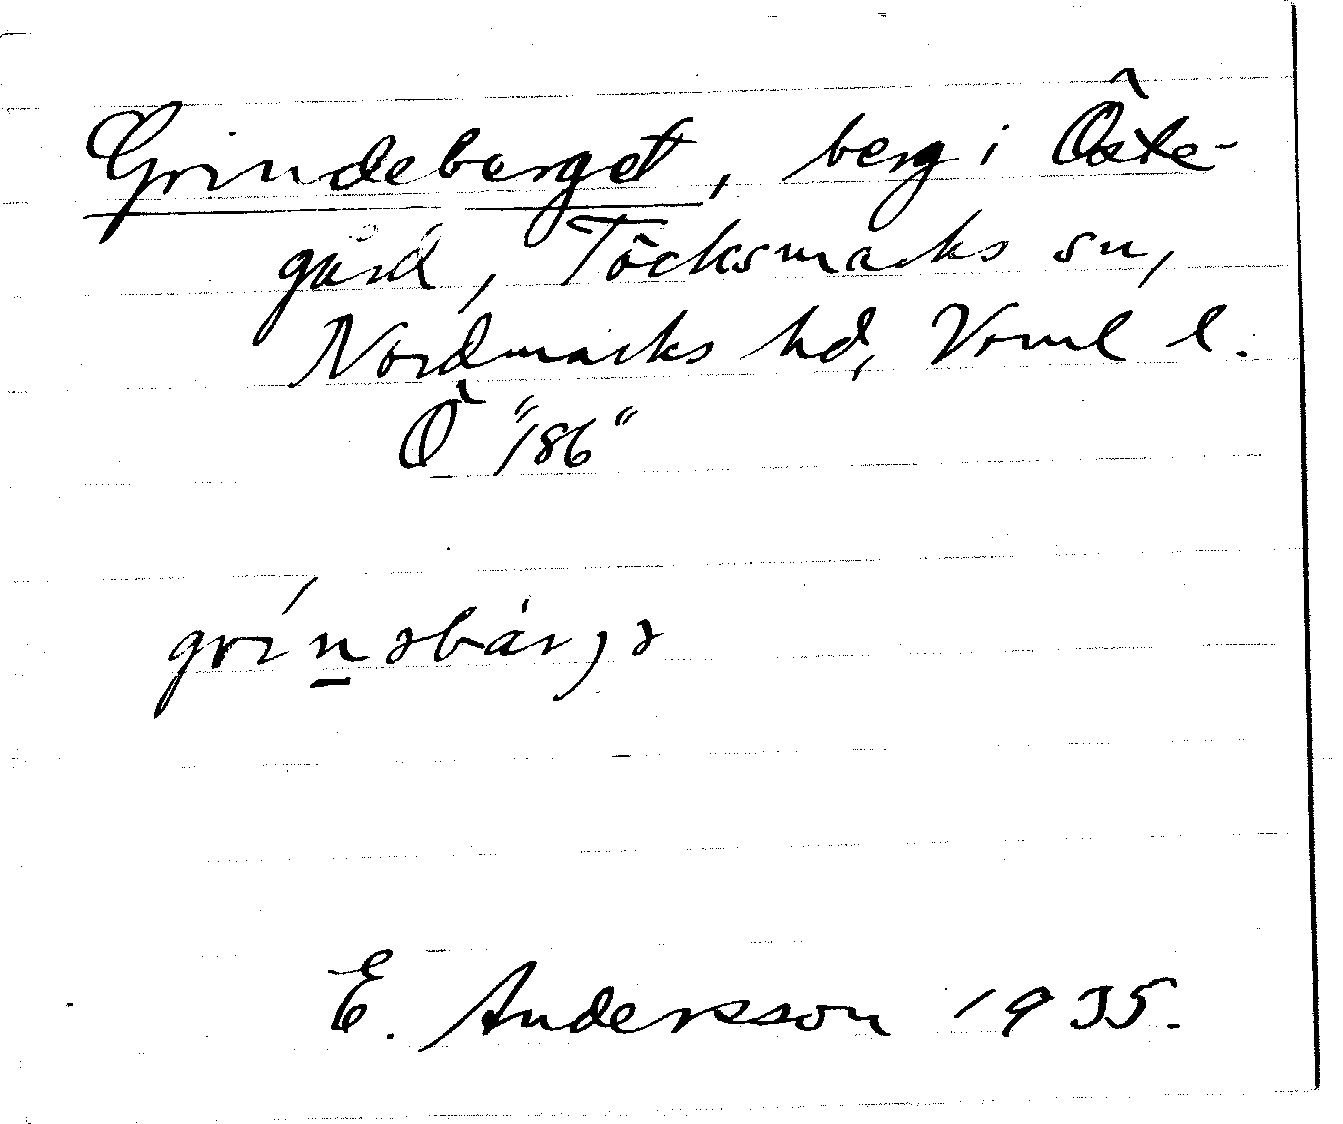 Grindeberget, berg i Öste-
gård, Töcksmarks sn,
Nordmarks hd, Vrml l.
Ö "186"
E. Andersson 1935.